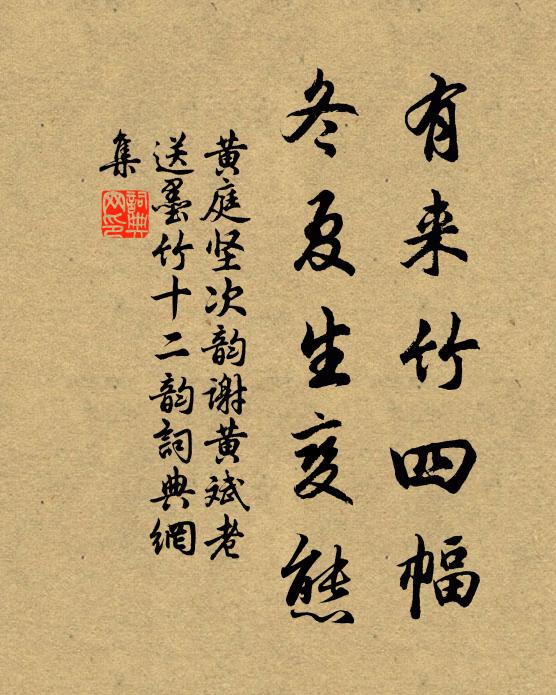 有来竹四幅
冬夏生变熊
黄庭坚次韵谢黄斌老
送墨竹十二韵詞典網
集
詞典
网印